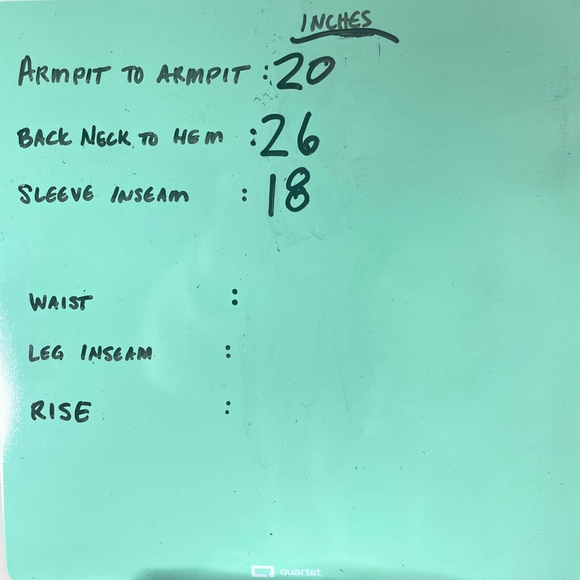 INCHES
ARMPIT TO ARMPIT : 20
BACK NECK TO HEM : 26
SLEEVE INSEAM : 18
WAIST :
LEG INSEAM :
RISE :
quartet